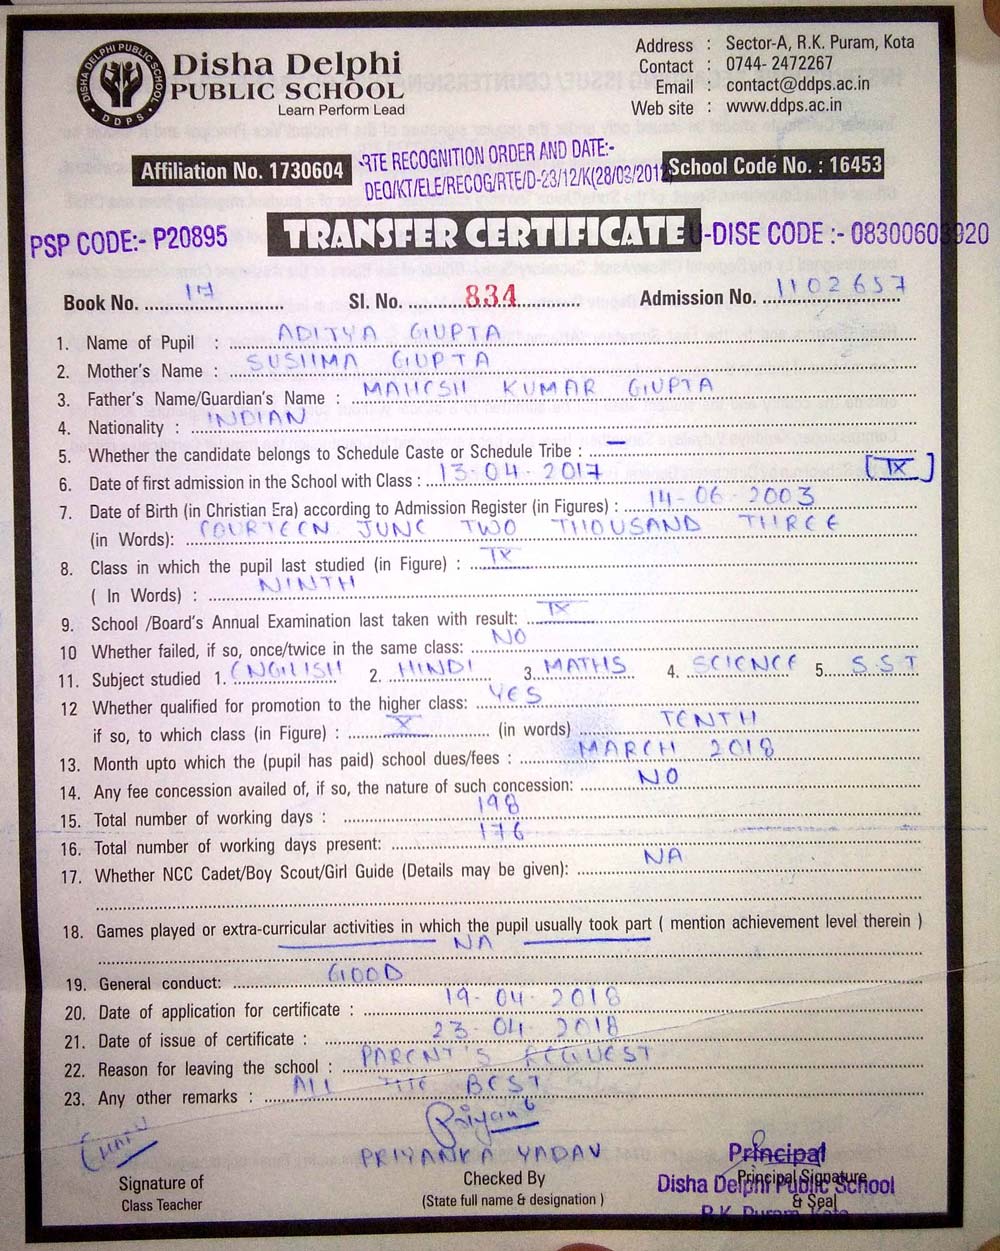 DISHA DELPHI PUBLIC SCHOOL
DDPS
Disha Delphi
PUBLIC SCHOOL
Learn Perform Lead
Address : Sector-A, R.K. Puram, Kota
Contact : 0744- 2472267
Email : contact@ddps.ac.in
Web site : www.ddps.ac.in
Affiliation No. 1730604
RTE RECOGNITION ORDER AND DATE:-
DEO/KT/ELE/RECOG/RTE/D-23/12/K(28/03/2012
School Code No. : 16453
PSP CODE:- P20895
TRANSFER CERTIFICATE
U-DISE CODE :- 08300603920
Book No. 17 Sl. No. 834 Admission No. 1102657
1. Name of Pupil : ADITYA GUPTA
2. Mother's Name : SUSHMA GUPTA
3. Father's Name/Guardian's Name : MAHESH KUMAR GUPTA
4. Nationality : INDIAN
5. Whether the candidate belongs to Schedule Caste or Schedule Tribe : —
6. Date of first admission in the School with Class : 13-04-2017 [IX]
7. Date of Birth (in Christian Era) according to Admission Register (in Figures) : 14-06-2003
(in Words): FOURTEEN JUNE TWO THOUSAND THREE
8. Class in which the pupil last studied (in Figure) : IX
( In Words) : NINTH
9. School /Board's Annual Examination last taken with result: IX
10 Whether failed, if so, once/twice in the same class: NO
11. Subject studied 1. ENGLISH 2. HINDI 3. MATHS 4. SCIENCE 5. S.S.T
12 Whether qualified for promotion to the higher class: YES
if so, to which class (in Figure) : X (in words) TENTH
13. Month upto which the (pupil has paid) school dues/fees : MARCH 2018
14. Any fee concession availed of, if so, the nature of such concession: NO
15. Total number of working days : 198
16. Total number of working days present: 176
17. Whether NCC Cadet/Boy Scout/Girl Guide (Details may be given): NA
18. Games played or extra-curricular activities in which the pupil usually took part ( mention achievement level therein )
NA
19. General conduct: GOOD
20. Date of application for certificate : 19-04-2018
21. Date of issue of certificate : 23-04-2018
22. Reason for leaving the school : PARENT'S REQUEST
23. Any other remarks : ALL THE BEST
PRIYANKA YADAV
Signature of
Class Teacher
Checked By
(State full name & designation )
Principal
Principal Signature
& Seal
Disha Delphi Public School
R.K. Puram, Kota